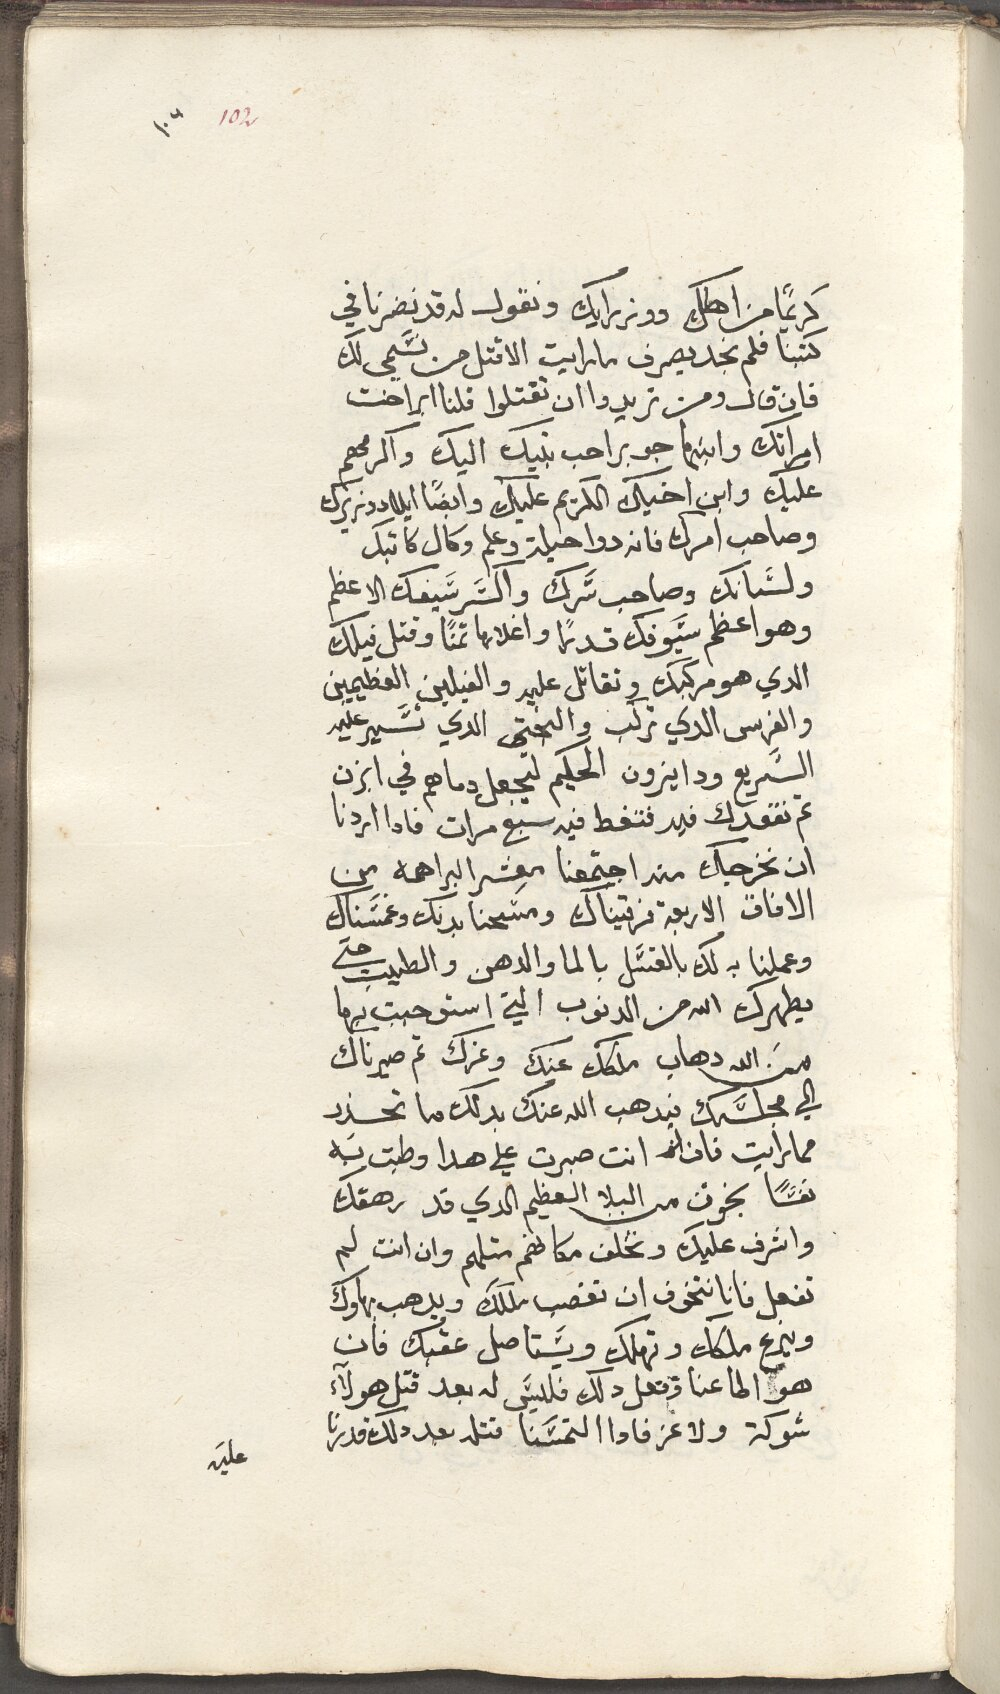 102
١٠٢
كريمًا من اهلك ووزير رايك ونقول له قد نضرنا في
كتبنا فلم نجد يصرف ما رايت الا قتل من نسّمي لك
فان قال ومن تريدوا ان تقتلوا قلنا ابراخت
امراتك وابنها جوبر احب بنيك اليك واكرمهم
عليك وابن اخيك الكريم عليك وايضًا ايلاد وزيرك
وصاحب امرك فانه دوا حيلة وعلم وكال كاتبك
ولسَانك وصاحب سَرك واكسَر سَيفك الاعظم
وهو اعظم سيَوفك قدرًا واغلاها تمنًا وقتل فيلك
الدي هو مركبك وتقاتل عليه والفيلين العظيمين
والفرس الدي تركب والبختي الدي تسَير عليه
السَريع وداينرون الحكيم ليجعل دماهم في ابزن
تم نقعدك فيه فتغط فيه سبع مرات فادا اردنا
ان نخرجك منه اجتمعنا معشر البراهمه من
الافاق الاربعة فرقيناك ومسَحنا بدنك وغمسَناك
وعملنا بدلك بالغسَل بالما والدهن والطيب حتي
يطهرك الله من الدنوب التي استوجبت بها
من الله دهاب ملكك عنك وعزك تم صيرناك
الي مجلسَك فيدهب الله عنك بدلك ما تحدر
مما رايت فان انت صبرت علي هدا وطبت به
نفسًَا نجوت من البلا العظيم الدي قد رهقك
واشرف عليك وتخلف مكانهم متلهم وان انت لم
تفعل فانا نتخوف ان تغصب ملكك ويدهب بهاوك
وينزع ملكك وتهلك ويسَتاصل عقبك فان
هو اطاعنا وفعل دلك فلليسَ له بعد قتل هولآء
شوكة ولا عز فادا التمسَنا قتله بعد دلك قدرنا
عليَه